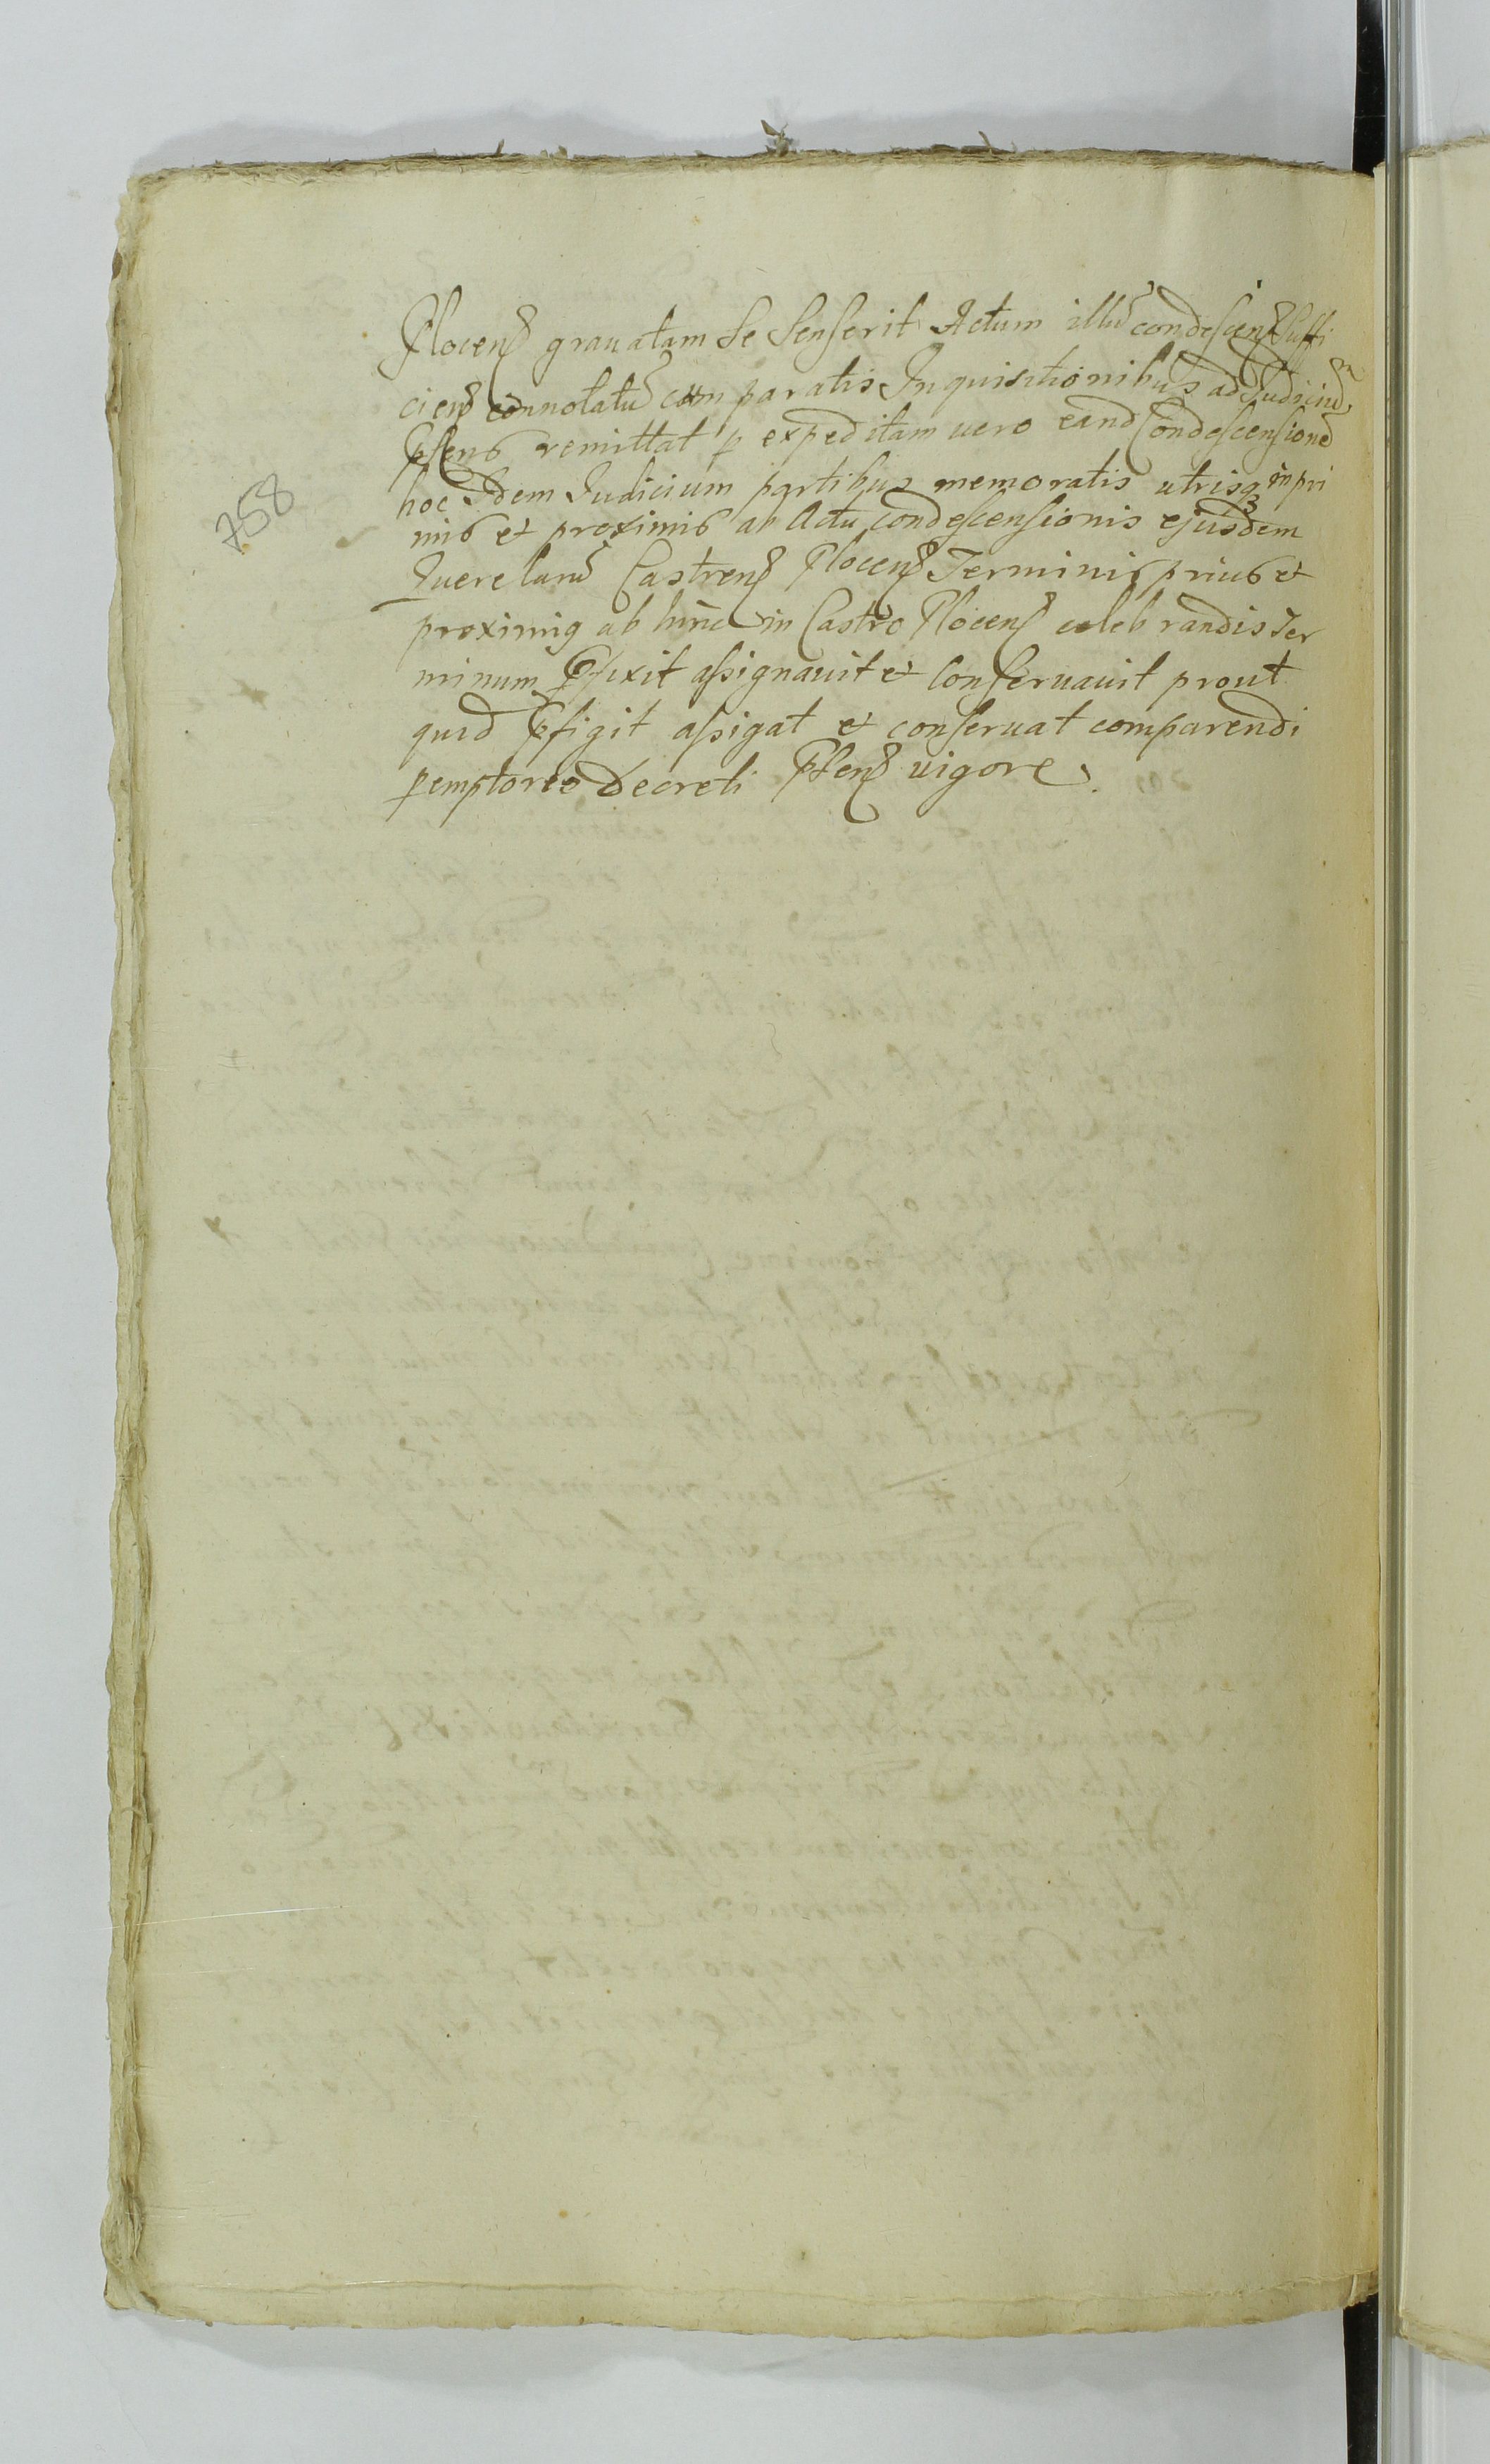 Plocens grauatam se senserit Actum illũ condescens suffi
ciens connotatũ cum paratis Inquisitionibus ad Judiciũ
pñs remittat p expeditam uero eand Condescensionẽ
hoc Idem Judicium partibus memoratis utrisq in pri
mis et proximis ab Actu condescensionis ejusdem
Querelarũ Castrens Plocens Terminis prius et
proximis ab hinc in Castro Plocens celebrandis Ter
minum pfixit assignauit et Conseruauit prout
quid pfigit assigat et conseruat comparendi
pemptorie Decreti psens uigore.
758